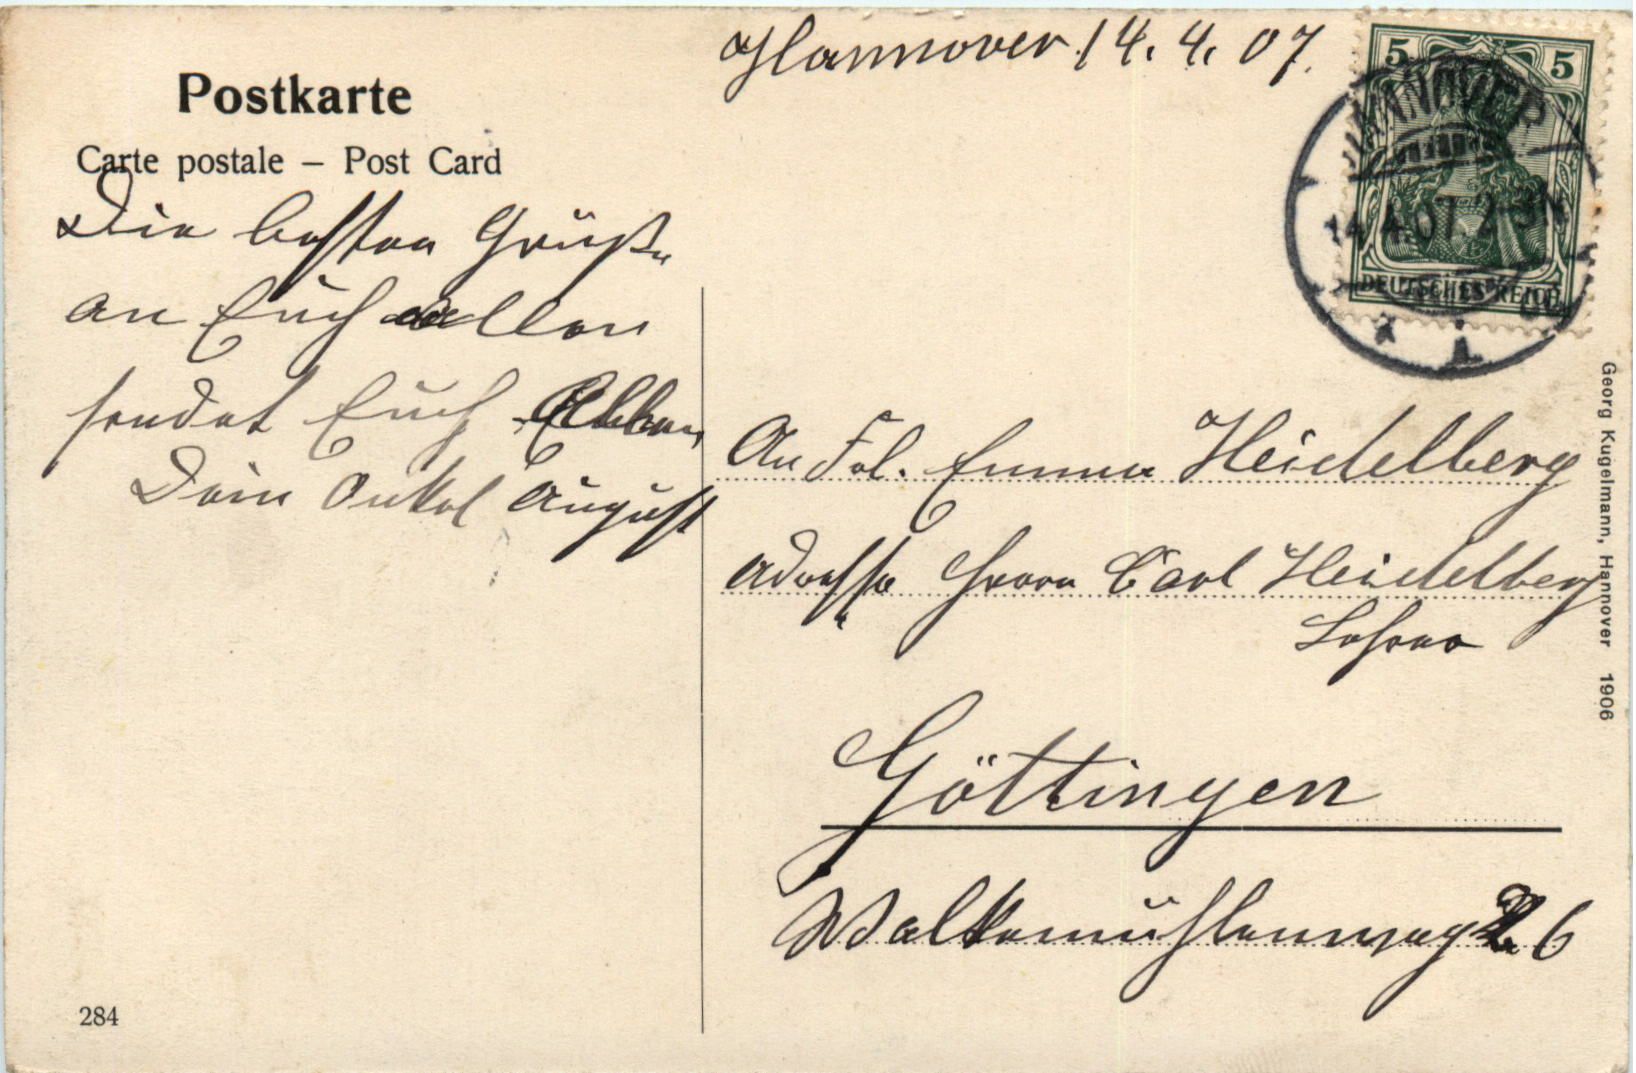 Hannover 14. 4. 07.
Postkarte
Carte postale – Post Card
Die besten Grüße
an Euch allen
sendet Euch
Dein Onkel August
5 5
HANNOVER
14.4.07.2-3N
DEUTSCHES REICH
An Frl. Emma Heidelberg
Adresse Herrn Carl Heidelberg
Lehrer
Göttingen
Walkemühlenweg 26
Georg Kugelmann, Hannover 1906
284